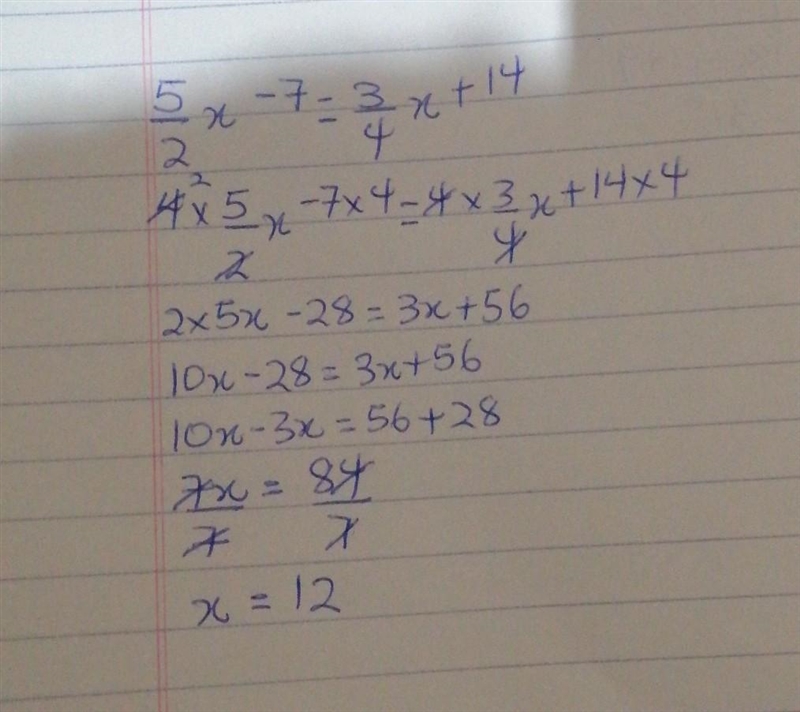 5/2 x - 7 = 3/4 x + 14
4² × 5/2 x - 7 × 4 = 4 × 3/4 x + 14 × 4
2 × 5x - 28 = 3x + 56
10x - 28 = 3x + 56
10x - 3x = 56 + 28
7x/7 = 84/7
x = 12